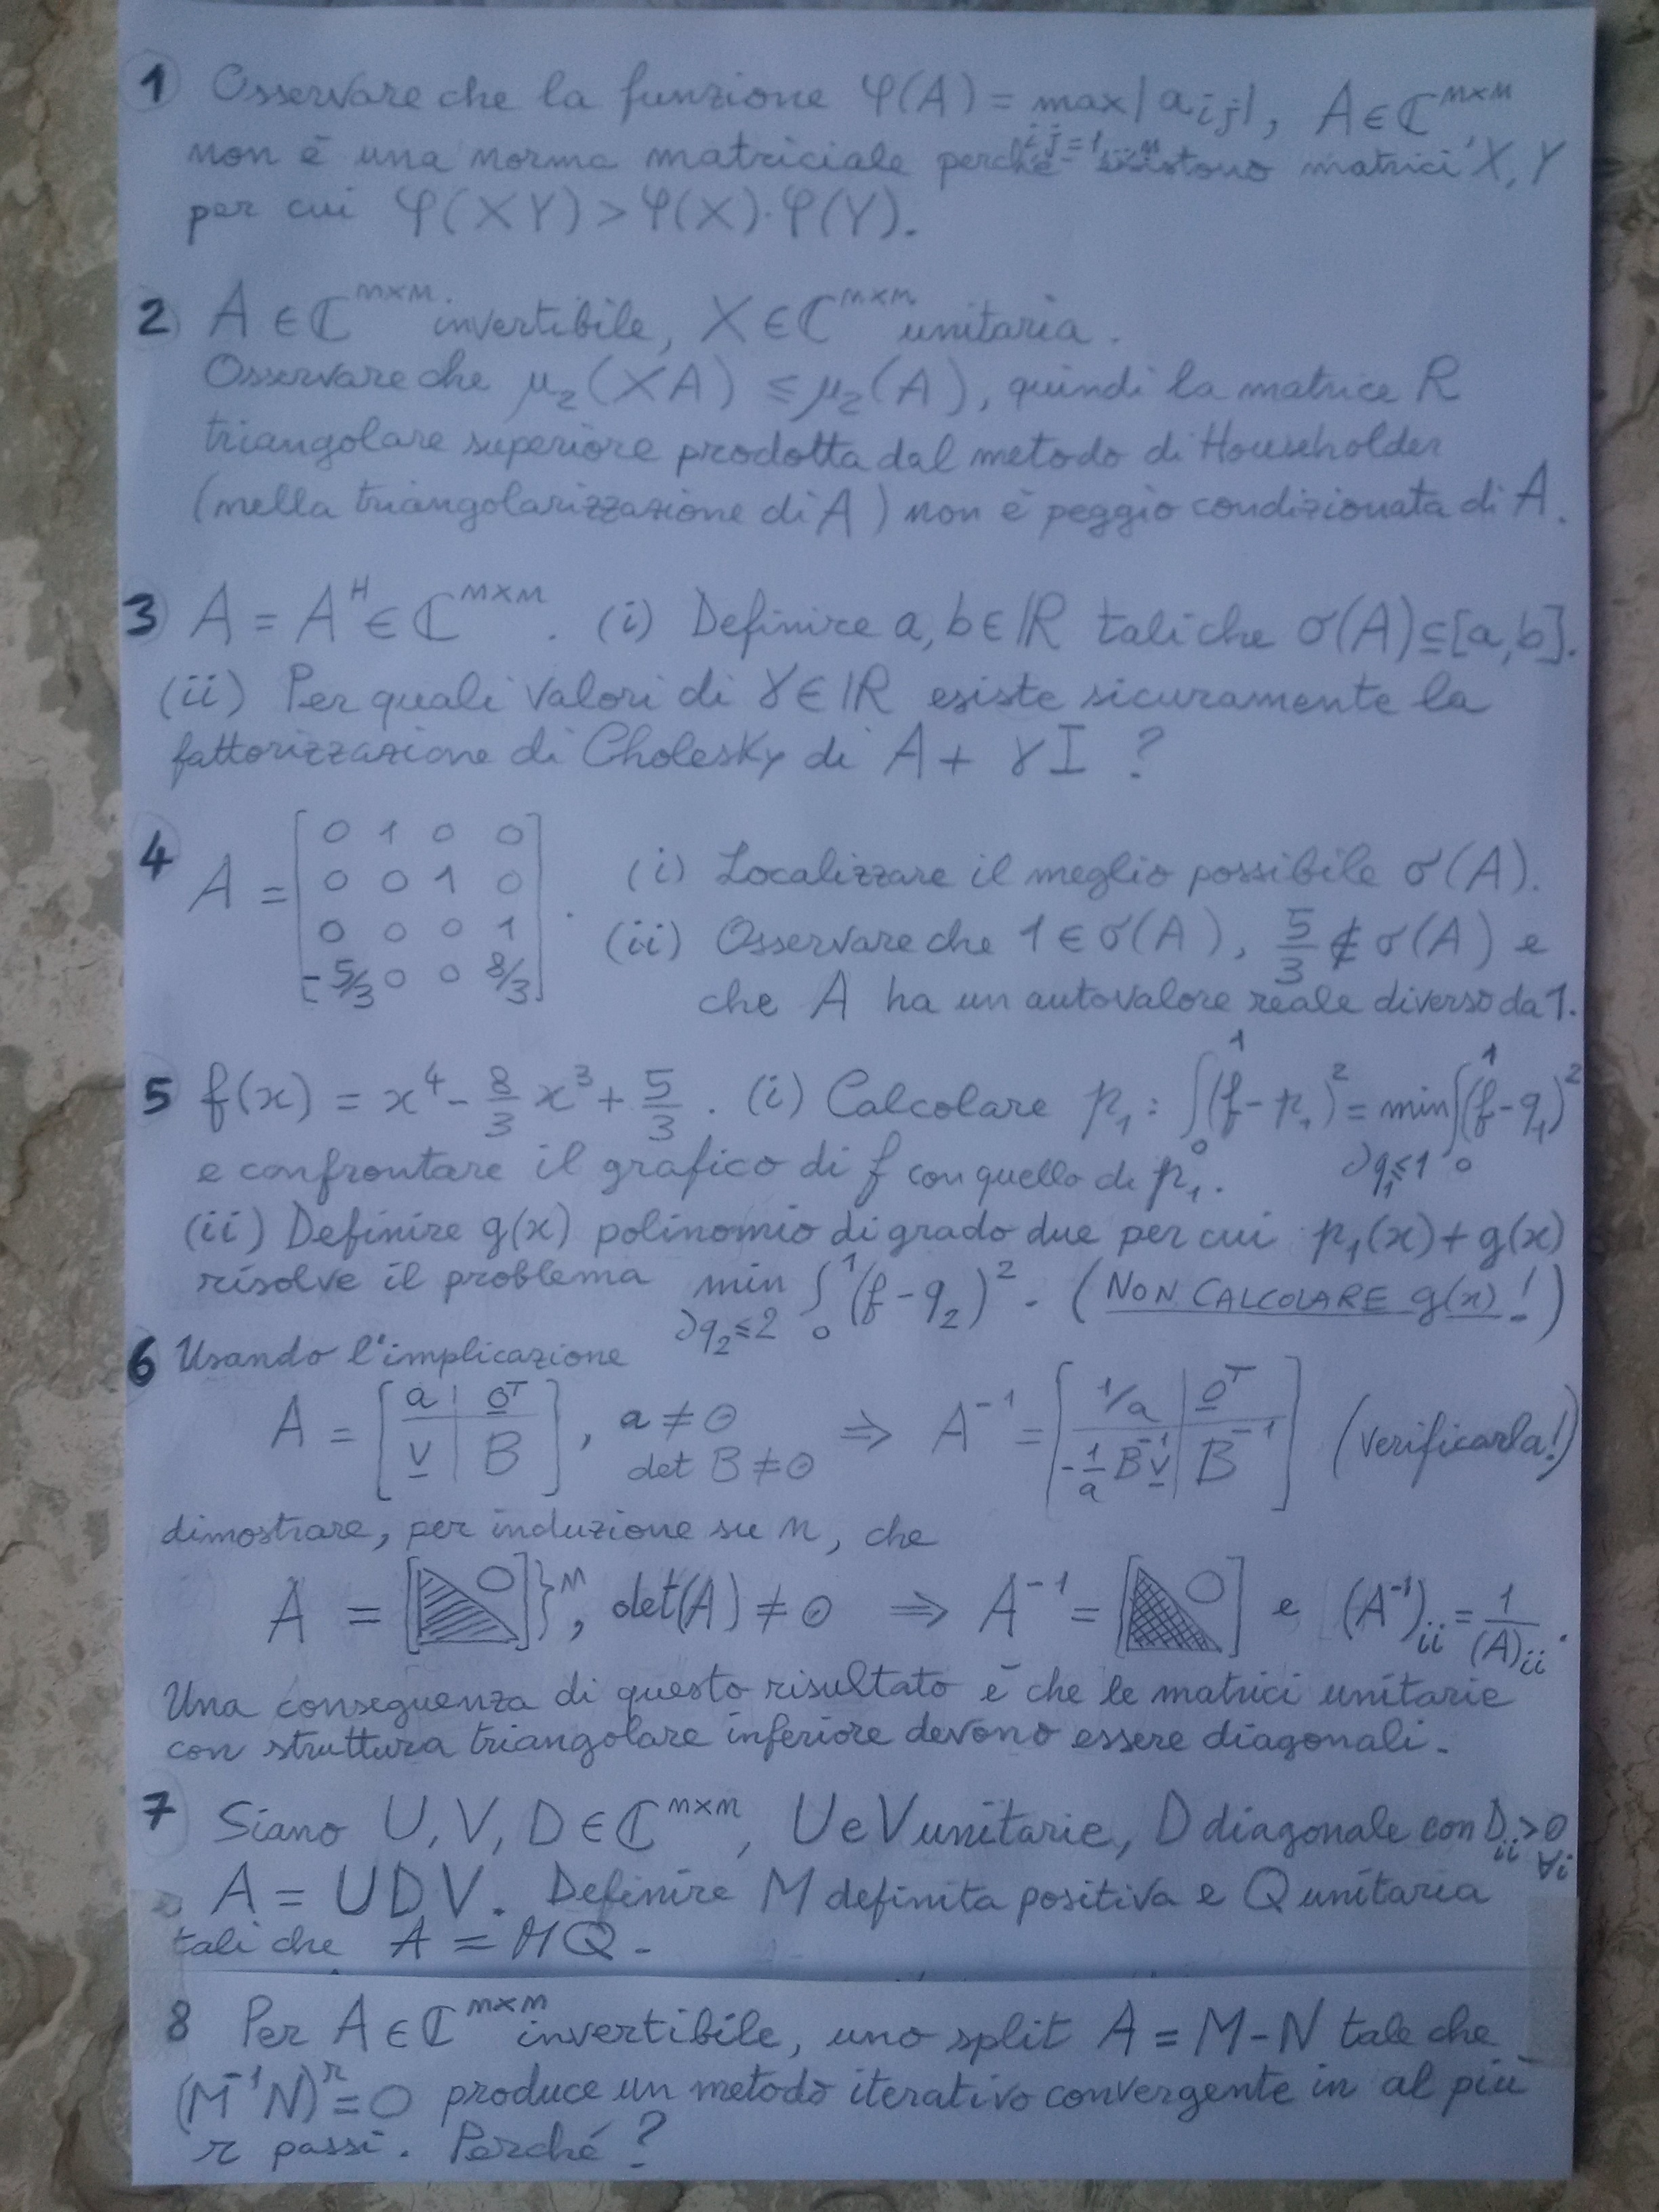 1 Osservare che la funzione φ(A) = max |a_ij|, A ∈ ℂ^{n×n}
i,j=1…n
non è una norma matriciale perché esistono matrici X, Y
per cui φ(XY) > φ(X)·φ(Y).
2 A ∈ ℂ^{n×n} invertibile, X ∈ ℂ^{n×n} unitaria.
Osservare che μ₂(XA) ≤ μ₂(A), quindi la matrice R
triangolare superiore prodotta dal metodo di Householder
(nella triangolarizzazione di A) non è peggio condizionata di A.
3 A = A^H ∈ ℂ^{n×n}. (i) Definire a, b ∈ ℝ tali che σ(A) ⊆ [a,b].
(ii) Per quali valori di γ ∈ ℝ esiste sicuramente la
fattorizzazione di Cholesky di A + γI ?
4 A = [0 1 0 0; 0 0 1 0; 0 0 0 1; -5/3 0 0 8/3]. (i) Localizzare il meglio possibile σ(A).
(ii) Osservare che 1 ∈ σ(A), 5/3 ∉ σ(A) e
che A ha un autovalore reale diverso da 1.
5 f(x) = x⁴ - 8/3 x³ + 5/3. (i) Calcolare p₁ : ∫₀¹(f-p₁)² = min_{∂q₁≤1} ∫₀¹(f-q₁)²
e confrontare il grafico di f con quello di p₁.
(ii) Definire g(x) polinomio di grado due per cui p₁(x)+g(x)
risolve il problema min_{∂q₂≤2} ∫₀¹(f-q₂)². (NON CALCOLARE g(x)!)
6 Usando l'implicazione
A = [a | 0^T; v | B], a ≠ 0 det B ≠ 0 ⇒ A⁻¹ = [1/a | 0^T; -1/a B⁻¹v | B⁻¹] (verificarla!)
dimostrare, per induzione su n, che
A = [ 0 ]}n, det(A) ≠ 0 ⇒ A⁻¹ = [ 0 ] e (A⁻¹)_ii = 1/(A)_ii.
Una conseguenza di questo risultato è che le matrici unitarie
con struttura triangolare inferiore devono essere diagonali.
7 Siano U, V, D ∈ ℂ^{n×n}, U e V unitarie, D diagonale con D_ii > 0 ∀i
e A = UDV. Definire M definita positiva e Q unitaria
tali che A = MQ.
8 Per A ∈ ℂ^{n×n} invertibile, uno split A = M-N tale che
(M⁻¹N)^r = 0 produce un metodo iterativo convergente in al più
r passi. Perché?